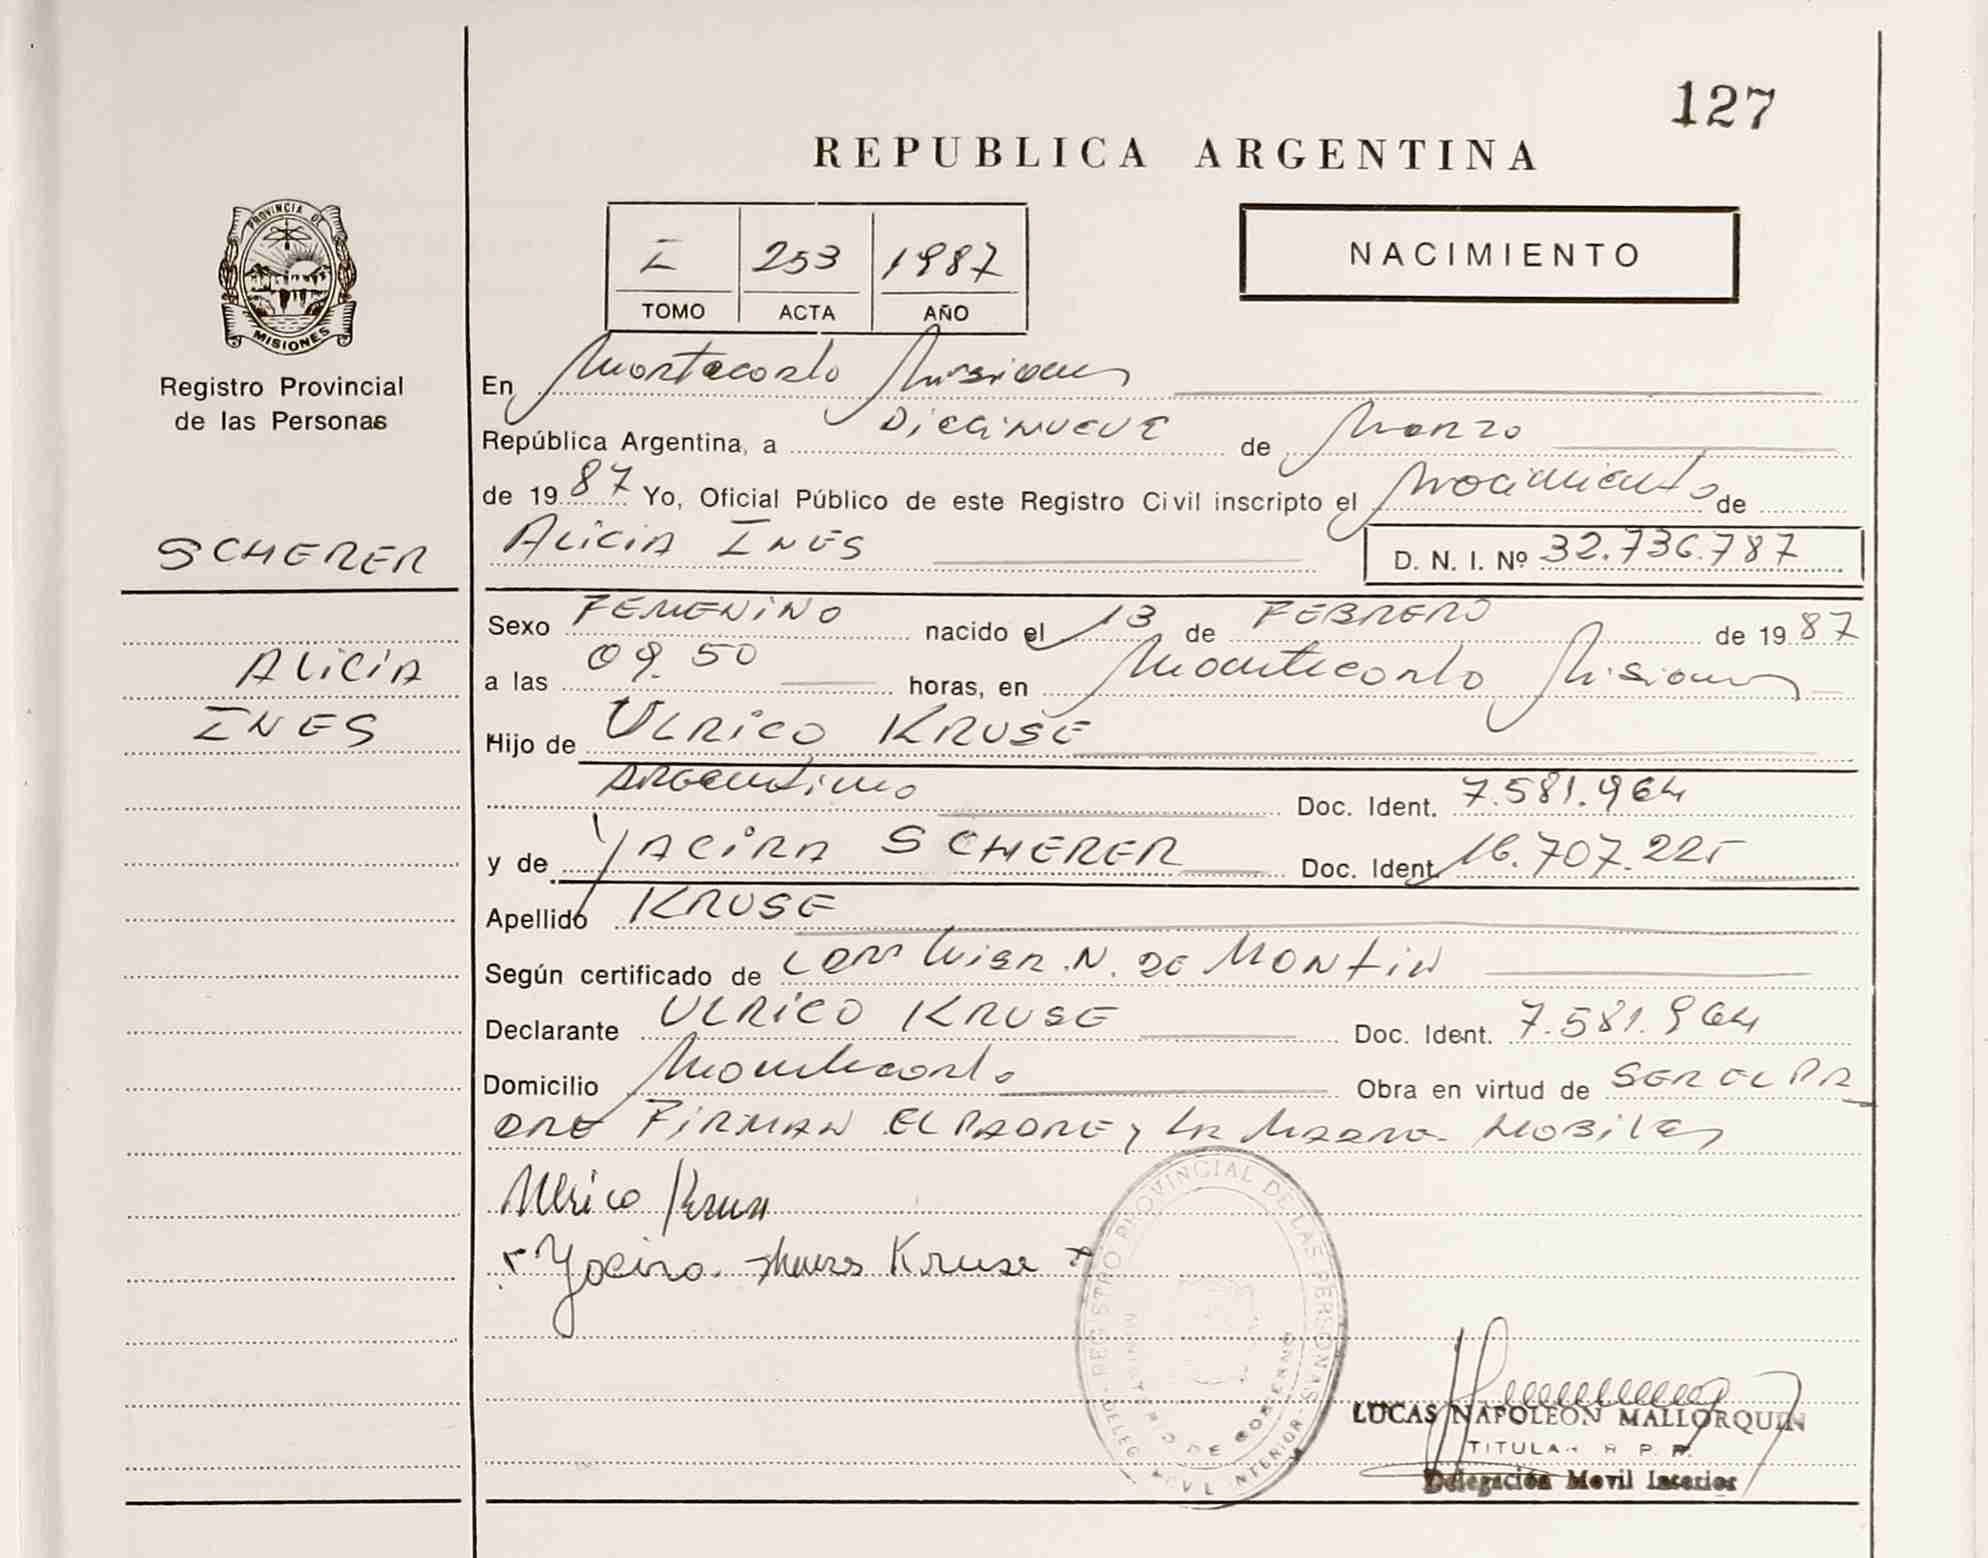 127
REPUBLICA ARGENTINA
PROVINCIA DE
MISIONES
Registro Provincial
de las Personas
I 253 1987
TOMO ACTA AÑO
NACIMIENTO
En Montecarlo Misiones
República Argentina, a Diecinueve de Marzo
de 1987 Yo, Oficial Público de este Registro Civil inscripto el Nacimiento de
SCHERER
Alicia Ines D. N. I. Nº 32.736.787
ALICIA
INES
Sexo FEMENINO nacido el 13 de FEBRERO de 1987
a las 09.50 horas, en Montecarlo Misiones
Hijo de ULRICO KRUSE
Argentino Doc. Ident. 7.581.964
y de YACIRA SCHERER Doc. Ident. 16.707.225
Apellido KRUSE
Según certificado de N. DE MONTIN
Declarante ULRICO KRUSE Doc. Ident. 7.581.964
Domicilio Montecarlo Obra en virtud de SER EL PA
DRE FIRMAN EL PADRE y LA MADRE
Ulrico Kruse
Yacira Kruse
REGISTRO PROVINCIAL DE LAS PERSONAS
MINISTERIO DE GOBIERNO
DELEG. MOVIL INTERIOR
LUCAS NAPOLEON MALLORQUIN
TITULAR R. P. P.
Delegación Movil Interior